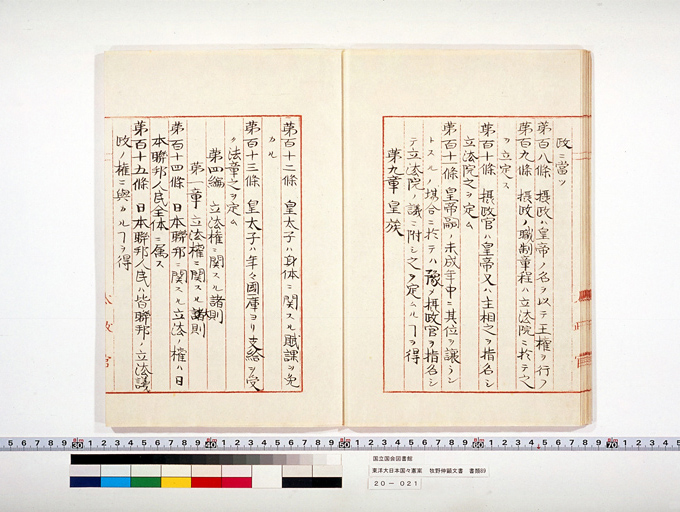 政ニ當ツ
第百八條 摂政ハ皇帝ノ名ヲ以テ王權ヲ行フ
第百九條 摂政ノ職制章程ハ立法院ニ於テ之
ヲ立定ス
第百十條 摂政官ハ皇帝又ハ主相之ヲ指名シ
立法院之ヲ定ム
第百十一條 皇帝嗣未成年中ニ其位ヲ譲ラン
トスルノ場合ニ於テハ豫メ摂政官ヲ指名シ
テ立法院ノ議ニ附シ之ヲ定ムルヿヲ得
第九章 皇族
第百十二條 皇太子ハ身体ニ関スル賦課ヲ免
カル
第百十三條 皇太子ハ年々國庫ヨリ支給ヲ受
ク法章之ヲ定ム
第四編 立法權ニ関スル諸則
第一章 立法權ニ関スル諸則
第百十四條 日本聯邦ニ関スル立法ノ權ハ日
本聯邦人民全体ニ属ス
第百十五條 日本聯邦人民ハ皆聯邦ノ立法議
政ノ權ニ與カルヿヲ得
太政官
国立国会図書館
東洋大日本国々憲案 牧野伸顕文書 書類69
20-021